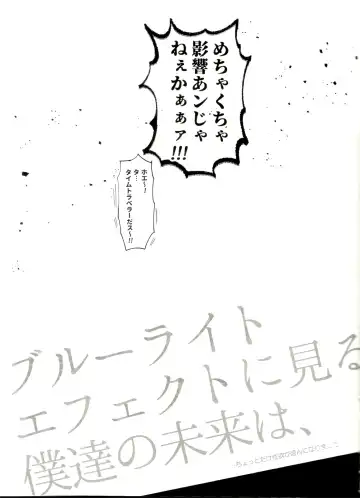 めちゃくちゃ
影響あンじゃ
ねぇかぁぁァ!!!
ホエ〜!
タ…
タイムトラベラーだス〜!!
ブルーライト
エフェクトに見る
僕達の未来は、
ちょっとだけ